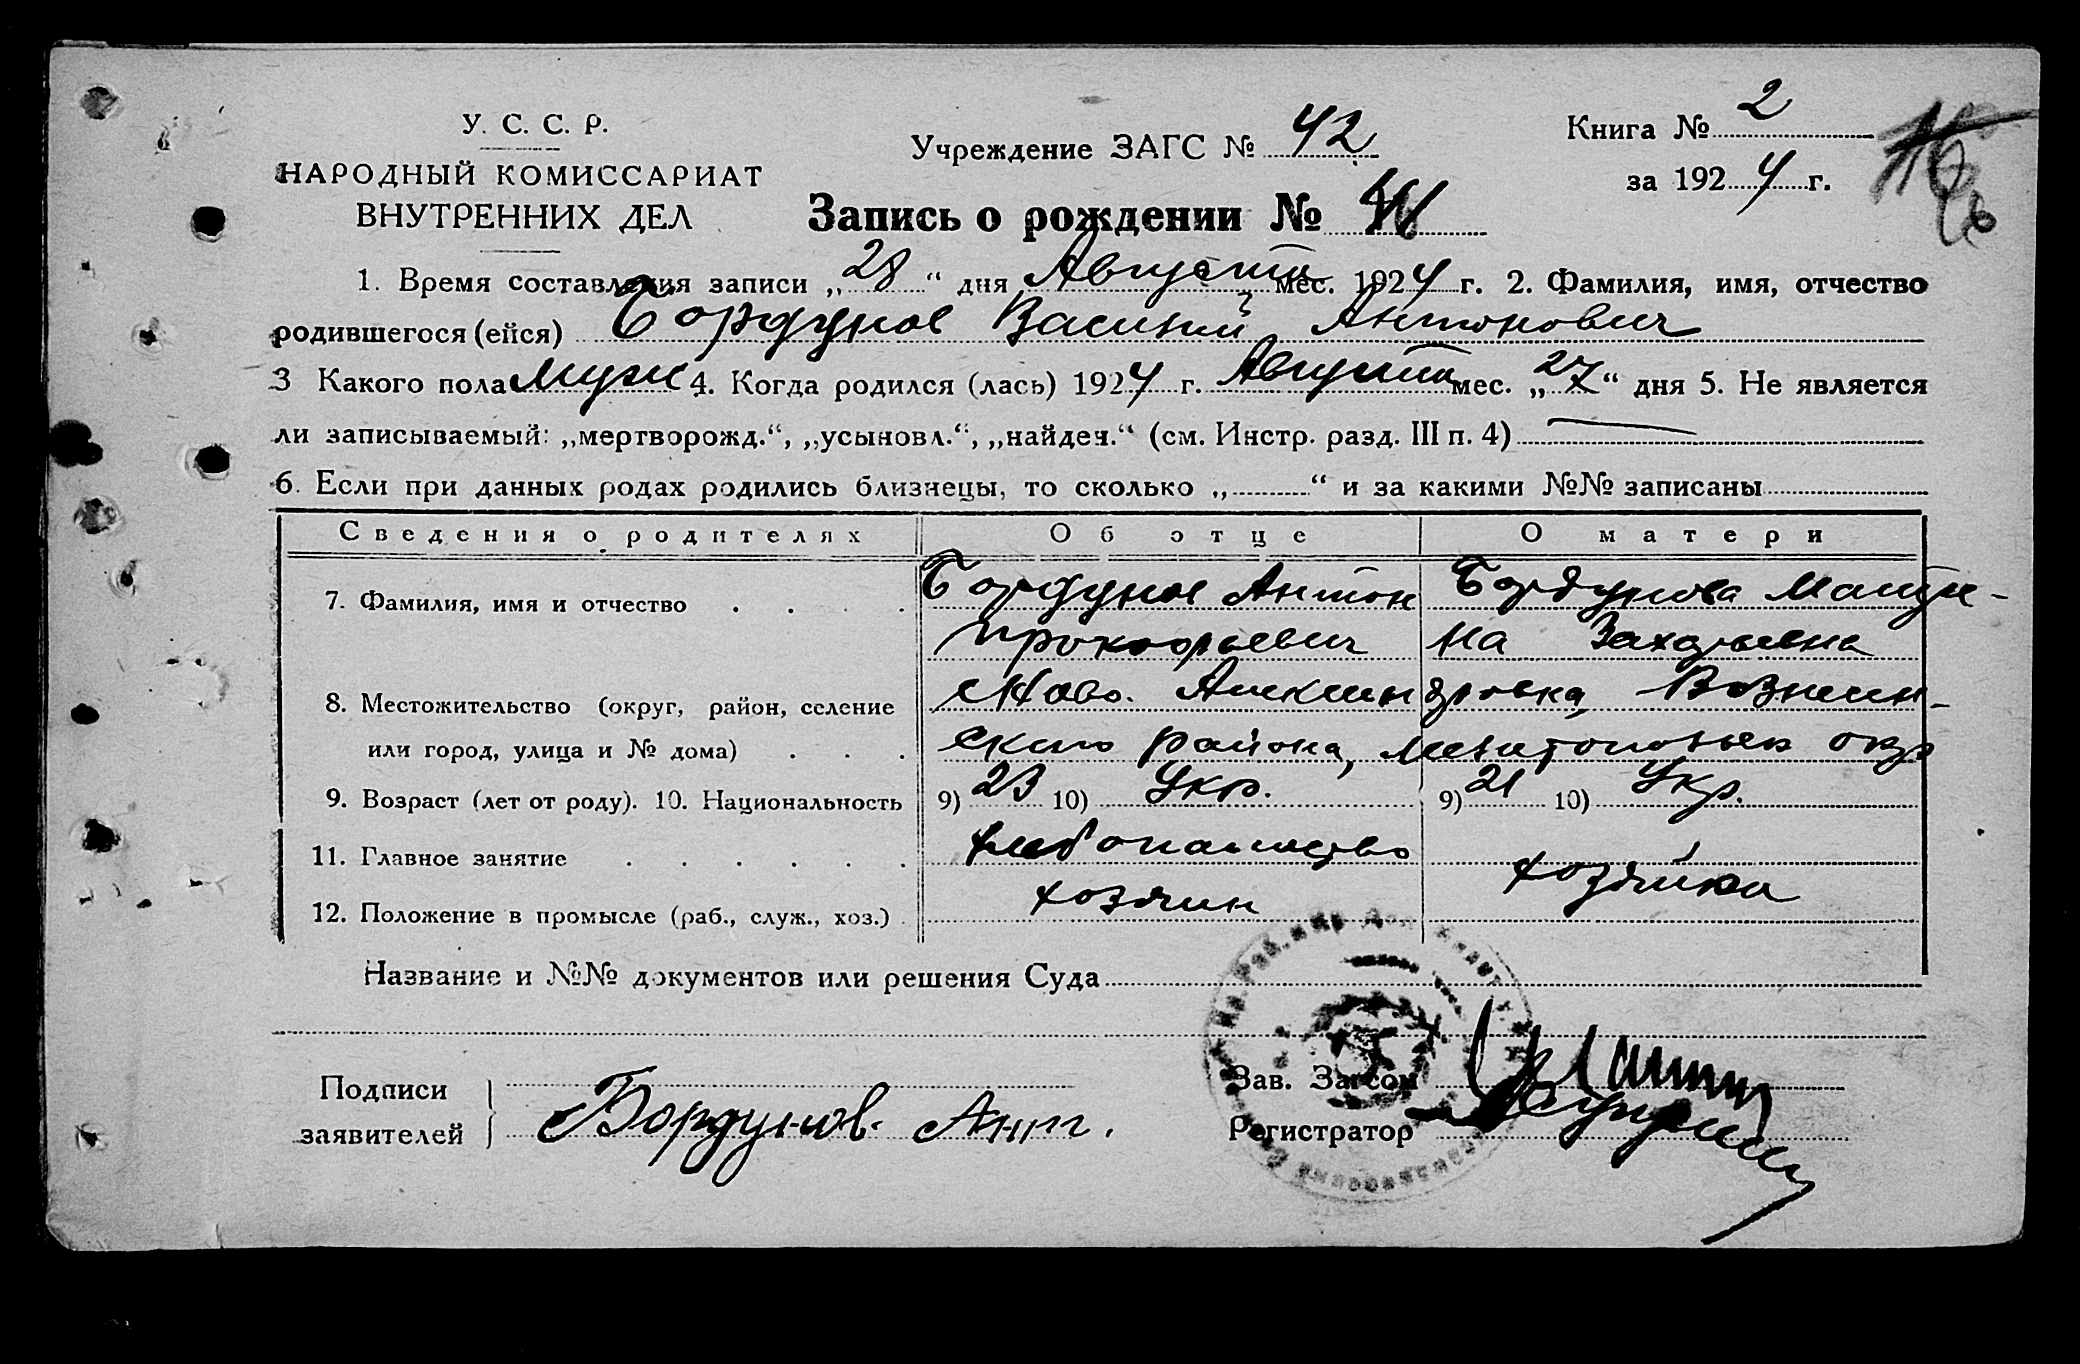 У. С. С. Р.
НАРОДНЫЙ КОМИССАРИАТ
ВНУТРЕННИХ ДЕЛ
Учреждение ЗАГС № 42
Книга № 2
за 1924 г.
Запись о рождении №
1. Время составления записи „28“ дня Августа мес. 1924 г. 2. Фамилия, имя, отчество
родившегося (ейся) Бордунов Василий Антонович
3 Какого пола муж 4. Когда родился (лась) 1924 г. Августа мес. „27“ дня 5. Не является
ли записываемый: „мертворожд.“, „усыновл.“, „найден.“ (см. Инстр. разд. III п. 4) —
6. Если при данных родах родились близнецы, то сколько „ “ и за какими №№ записаны
Сведения о родителях Об отце О матери
7. Фамилия, имя и отчество Бордунов Антон Бордунова
Прокофьевич на Захарьевна
8. Местожительство (округ, район, селение Ново.
или город, улица и № дома) района,
9. Возраст (лет от роду). 10. Национальность 9) 23 10) Укр. 9) 21 10) Укр.
11. Главное занятие хлебопашество
12. Положение в промысле (раб., служ., хоз.) хозяин хозяйка
Название и №№ документов или решения Суда
Подписи
заявителей Бордунов Ант.
Зав. Загсом
Регистратор